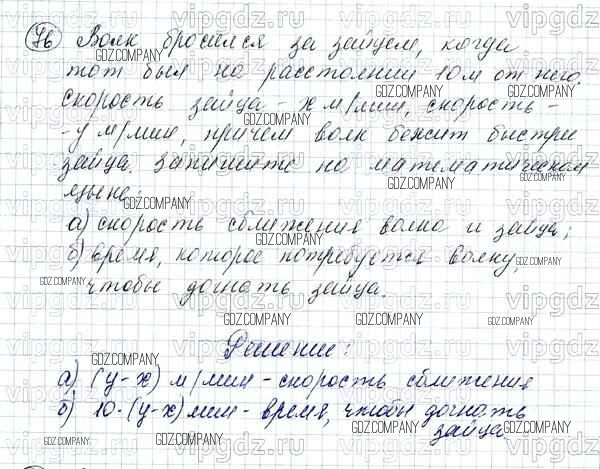 76 Волк бросился за зайцем, когда
тот был на расстоянии 10 м от него.
скорость зайца - х м/мин, скорость -
- у м/мин, причем волк бежит быстрее
зайца. Запишите на математическом
языке:
а) скорость сближения волка и зайца;
б) время, которое потребуется волку,
чтобы догнать зайца.
Решение:
а) (у-х) м/мин - скорость сближения
б) 10·(у-х) мин - время, чтобы догнать
зайца